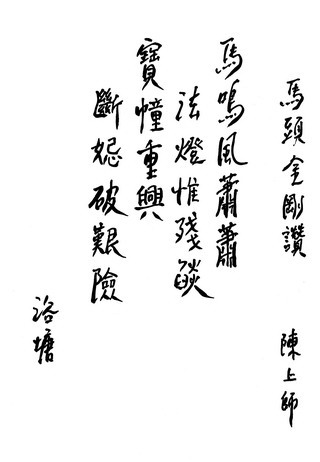 馬頭金剛讚
陳上師
馬鳴風蕭蕭
法燈惟殘燄
寶幢重興
斷破艱險
塘